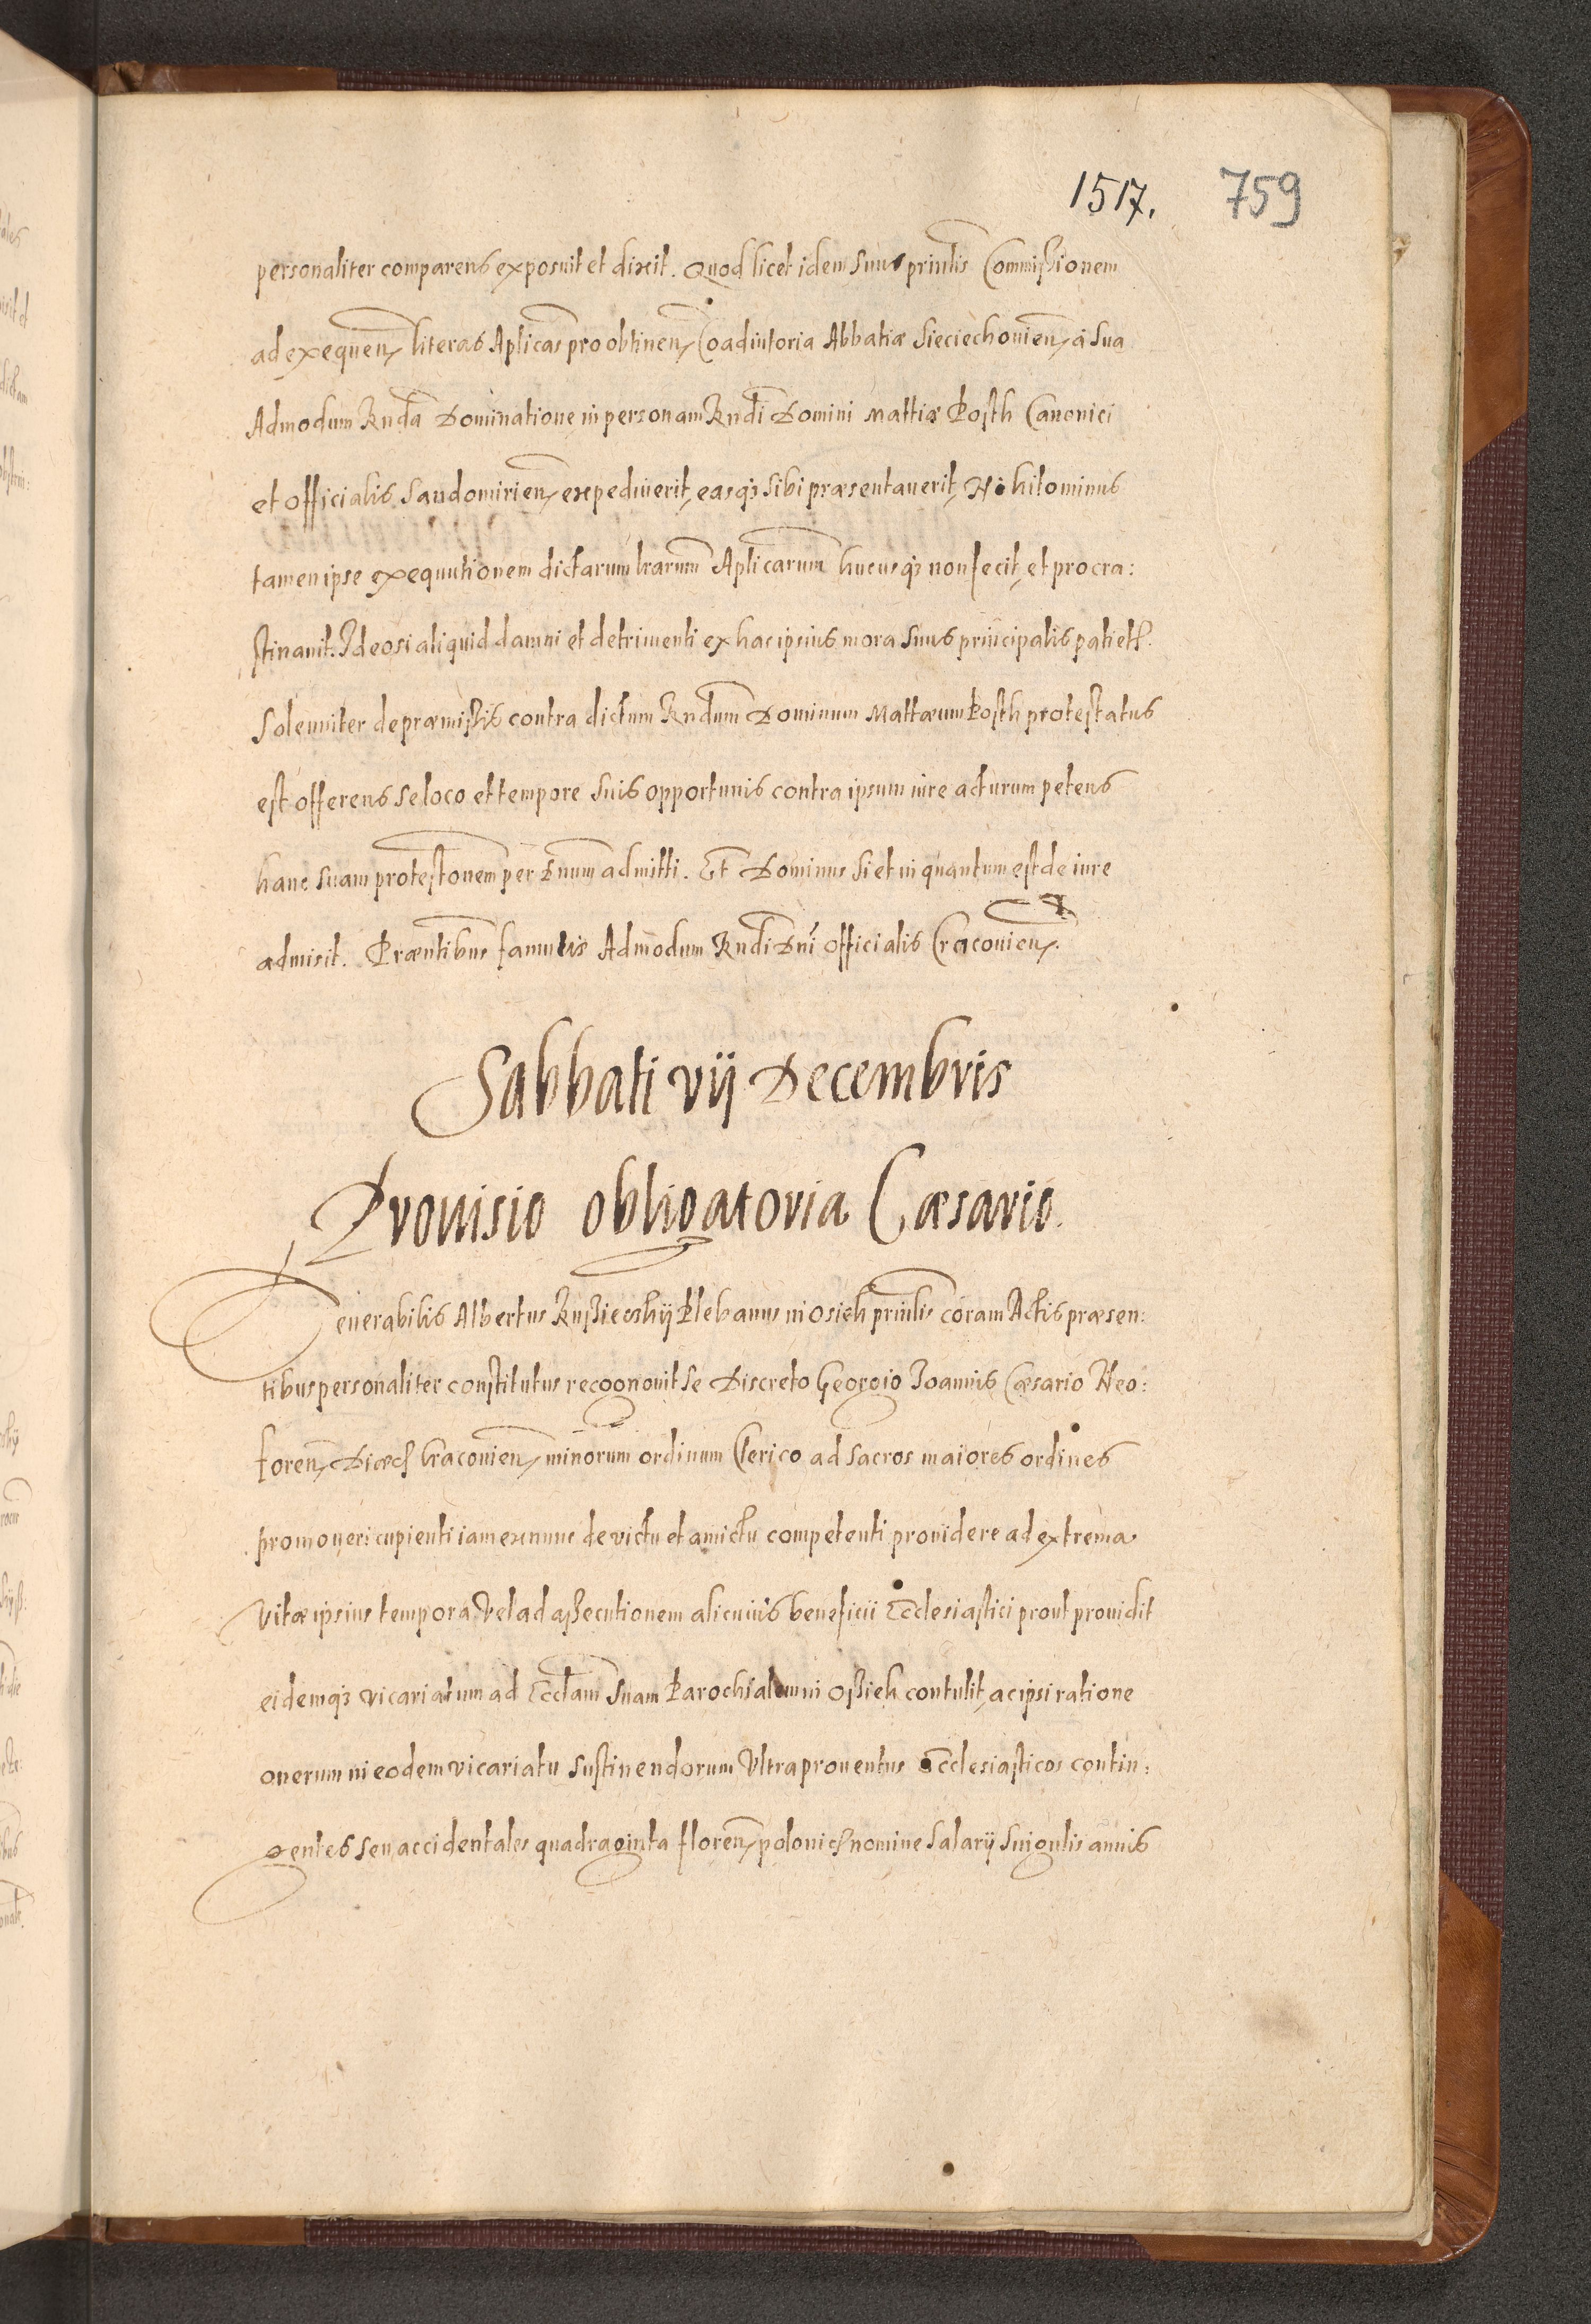 1517. 759
personaliter comparens exposuit et dixit. Quod licet idem suus prin̄lis Commißionem
ad exequen̄ literas Aplicas pro obtinen̄ Coadiutoria Abbatiæ Sieciechouien̄ à Sua
Admodum Rnda Dominatione in personam Rndi Domini Mattiæ Posth Canonici
et officialis Sandomirien̄ expediuerit, easq3 sibi præsentauerit, Nihilominus
tamen ipse exequutionem dictarum lrarum Aplicarum hucusq3 non fecit, et procra:
stinauit. Ideo si aliquid damni et detrimenti ex hac ipsius mora suus principalis patiet.
Solemniter de præmißis contra dictum Rndum Dominum Mattæum Posth protestatus
est offerens se loco et tempore suis opportunis contra ipsum iure acturum petens
hanc suam protestonem per Dnum admitti. Et Dominus si et in quantum est de iure
admisit. Præntibus famulis Admodum Rndi Dni officialis Cracouien̄.
Sabbati vij Decembris
Prouisio obligatoria Cæsario.
Venerabilis Albertus Rußieczkij Plebanus in Osiek prin̄lis coram Actis præsen:
tibus personaliter constitutus recognouit se Discreto Georgio Joannis Cæsario Neo:
foren̄ Diœc Cracouien̄ minorum ordinum Clerico ad sacros maiores ordines
promoueri cupienti iam ex nunc de victu et amictu competenti prouidere ad extrema
vitæ ipsius tempora vel ad aßecutionem alicuius beneficii Ecclesiastici prout prouidit
eidemq3 vicariatum ad Ecclam suam Parochialem in Oßiek contulit, ac ipsi ratione
onerum in eodem vicariatu sustinendorum Vltra prouentus Ecclesiasticos contin:
gentes seu accidentales quadraginta floren̄ polonic nomine salarij singulis annis